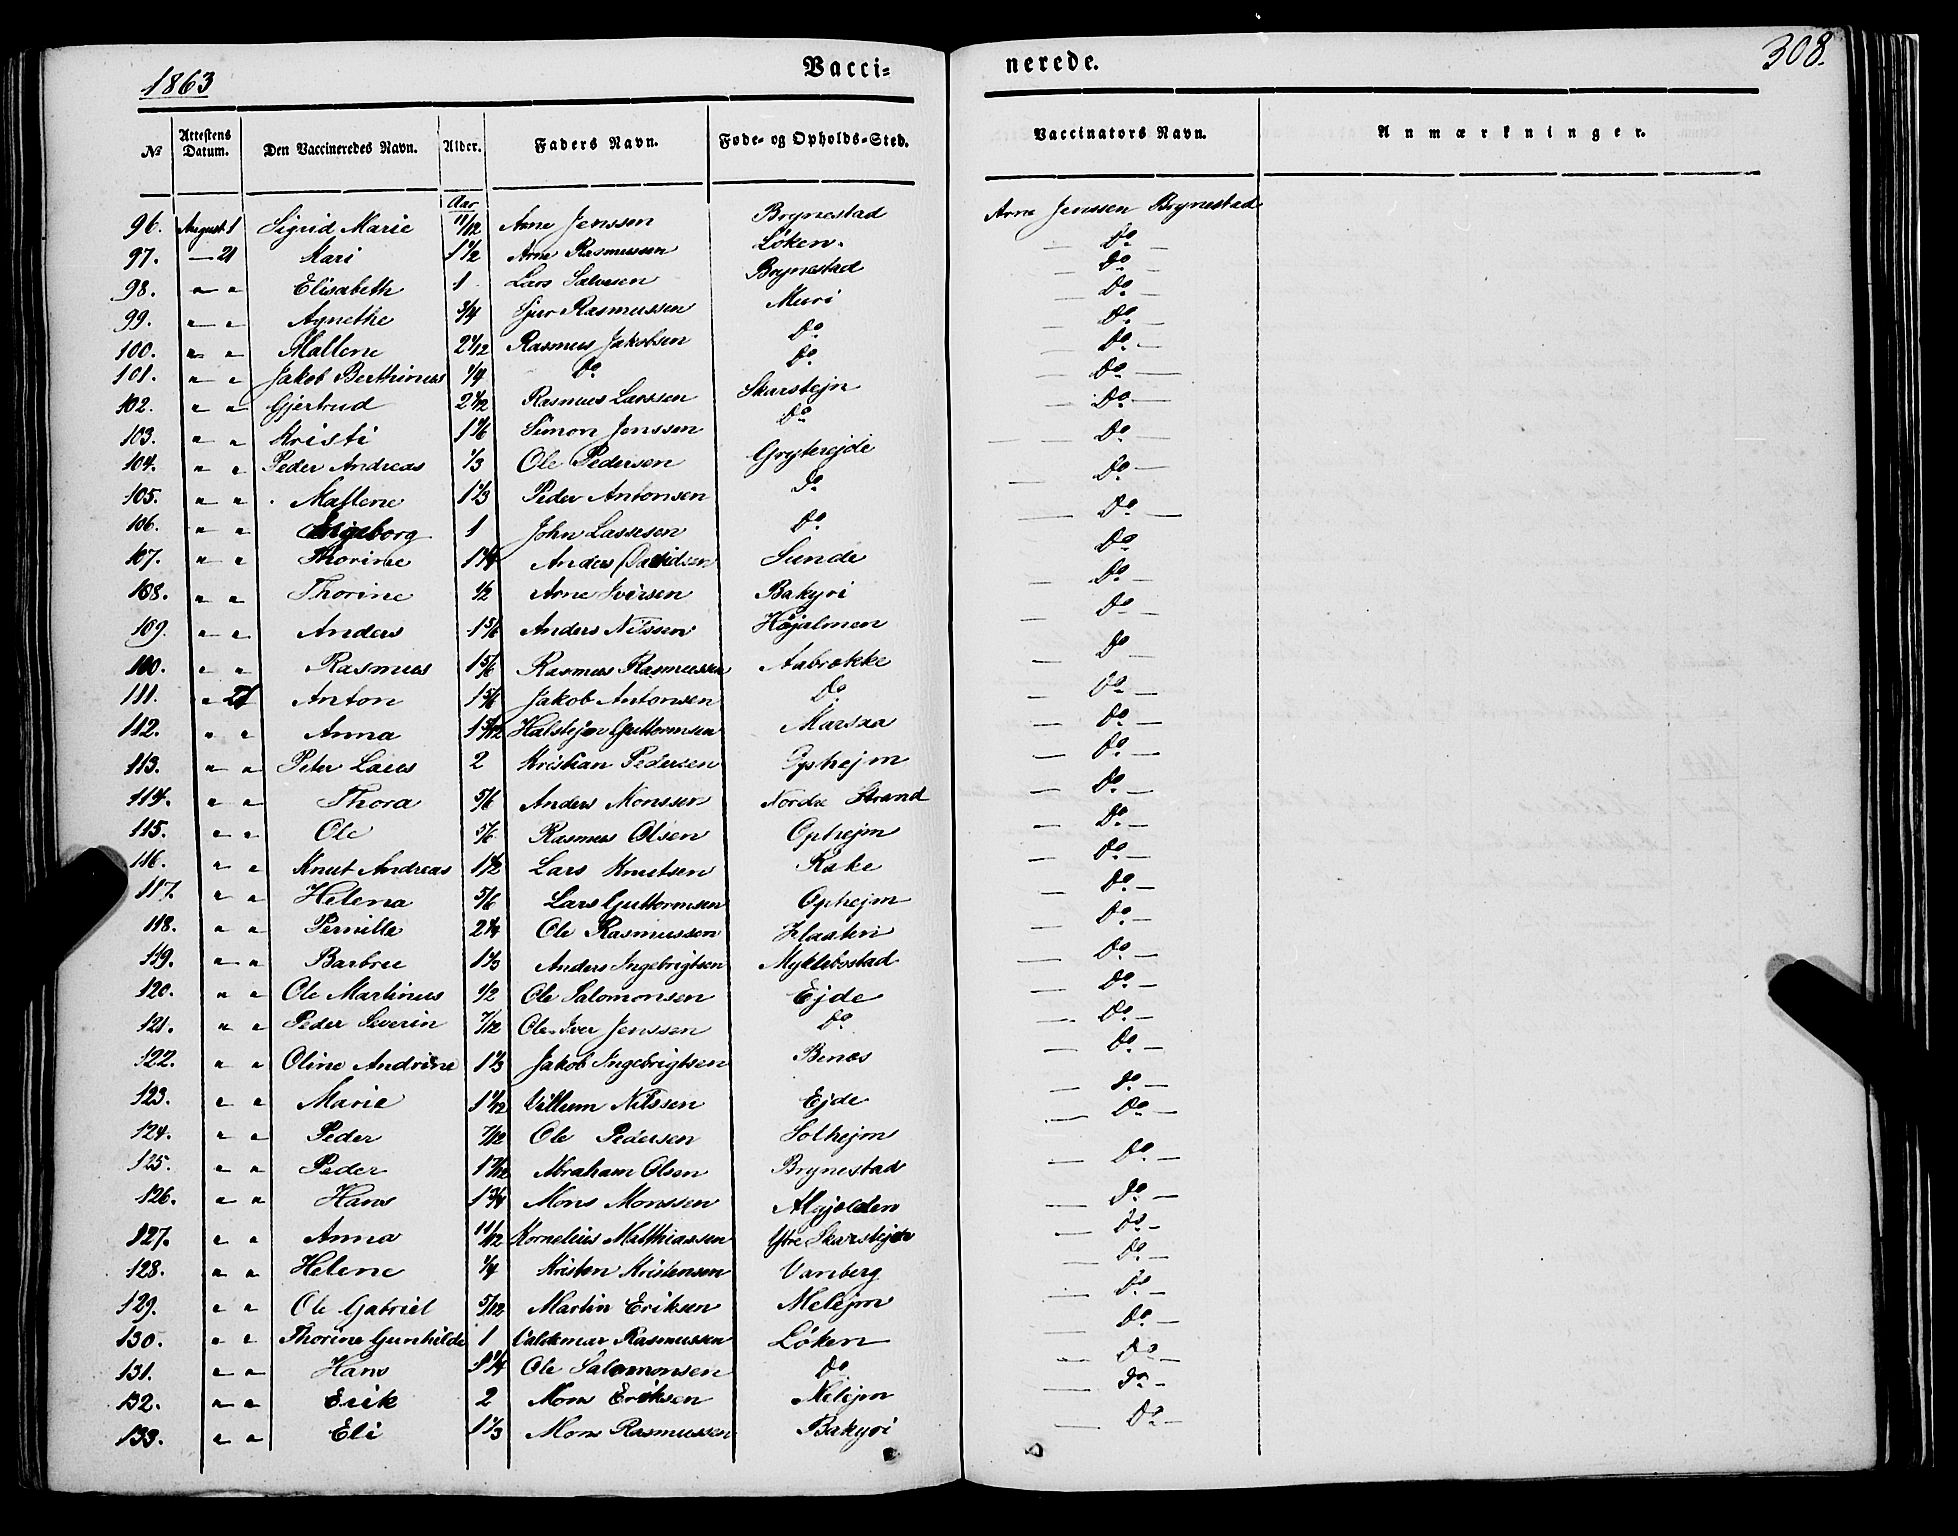 1863 Vacci- nerede. 308.
№ Attestens Datum. Den Vaccineredes Navn. Alder. Faders Navn. Føde- og Opholds-Sted. Vaccinators Navn. Anmærkninger.
Aar
96. August 1 Sigrid Marie 11/12 Arne Jenssen Brynestad Arne Jenssen Brynestad
97. — 21 Mari 1 1/2 Arne Rasmussen Løken. — Do —
98. " " Elisabeth 1 Lars Salvesen Brynestad — Do —
99. " " Agnethe 3/4 Sjur Rasmussen Muri — Do —
100. " " Mallene 2 1/12 Rasmus Jakobsen Do — Do —
101. " " Jakob Berthinus 1/4 Do Do — Do —
102. " " Gjertrud 2 1/12 Rasmus Larssen Skarstejn — Do —
103. " " Kristi 1 1/6 Simon Jenssen Do — Do —
104. " " Peder Andreas 1/3 Ole Pedersen Gryterejde — Do —
105. " " Mallene 1 1/3 Peder Antonsen Do — Do —
106. " " Ingeborg 1 John Lassesen Do — Do —
107. " " Thorine 1 1/4 Anders Davidsen Sunde — Do
108. " " Thorine 1/2 Arne Iversen Bakyri — Do —
109. " " Anders 1 5/6 Anders Nilssen Højalmen — Do —
110. " " Rasmus 1 5/6 Rasmus Rasmussen Aabrække — Do —
111. " 21 Anton 1 5/6 Jakob Antonsen Do — Do —
112. " " Anna 1 5/12 Halstejn Guttormsen Marsaa — Do —
113. " " Peter Laus 2 Kristian Pedersen Ophejm — Do —
114. " " Thora 5/6 Anders Monssen Nordre Strand — Do —
115. " " Ole 5/6 Rasmus Olsen Ophejm — Do —
116. " " Knut Andreas 1 1/2 Lars Knutsen Kake — Do —
117. " " Helena 5/6 Lars Guttormsen Ophejm — Do —
118. " " Pernille 2 1/4 Ole Rasmussen Flaaten — Do —
119. " " Barbru 1 1/3 Anders Ingebrigtsen Myklebostad — Do —
120. " " Ole Martinus 1/2 Ole Salomonsen Ejde — Do —
121. " " Peder Severin 7/12 Ole Iver Jenssen Do — Do —
122. " " Oline Andrine 1 1/3 Jakob Ingebrigtsen Benæs — Do —
123. " " Marie 1 1/12 Villum Nilssen Ejde — Do —
124. " " Peder 7/12 Ole Pedersen Solhejm — Do —
125. " " Peder 1 7/12 Abraham Olsen Brynestad — Do —
126. " " Hans 1 3/4 Mons Monssen — Do —
127. " " Anna 11/12 Kornelius Matthiassen Ytre Skarstejn — Do —
128. " " Helene 1/4 Kristen Kristensen Vanberg — Do —
129. " " Ole Gabriel 5/12 Martin Eriksen Melejm — Do —
130. " " Thorine Gunhilde 1 Valdemar Rasmussen Løken — Do —
131. " " Hans 1 1/4 Ole Salomonsen Do — Do —
132. " " Erik 2 Mons Eriksen — Do —
133. " " Eli 1 1/3 Mons Rasmussen Bakyri — Do —